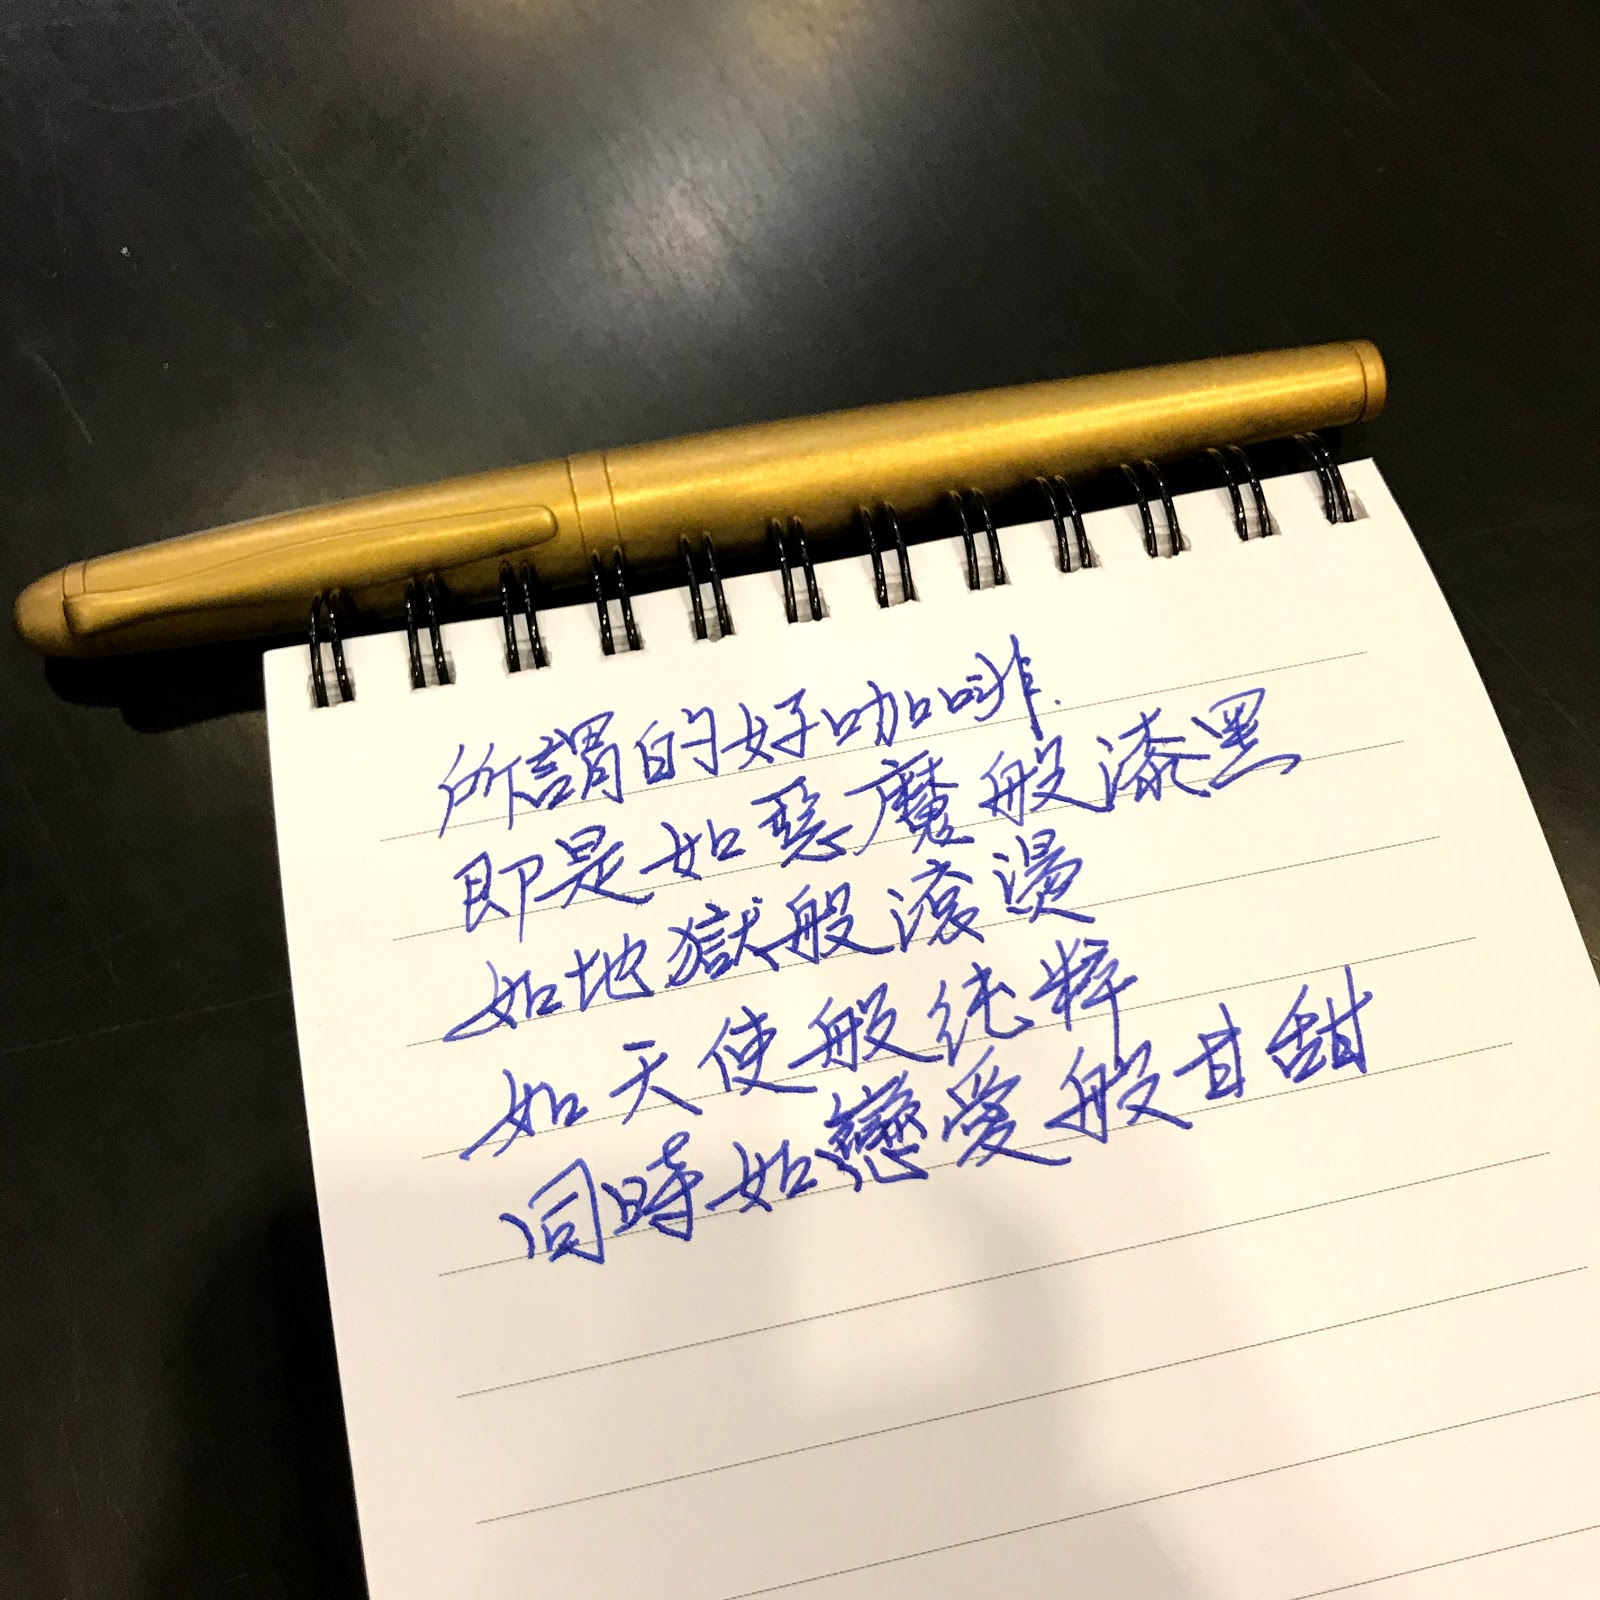 所謂的好咖啡.
即是如惡魔般漆黑
如地獄般滾燙
如天使般純粹
同時如戀愛般甘甜